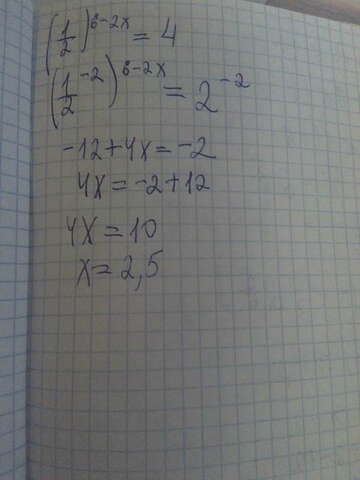 (1/2)^6-2x = 4
(1/2^-2)^6-2x = 2^-2
-12+4x=-2
4x=-2+12
4x=10
x=2,5